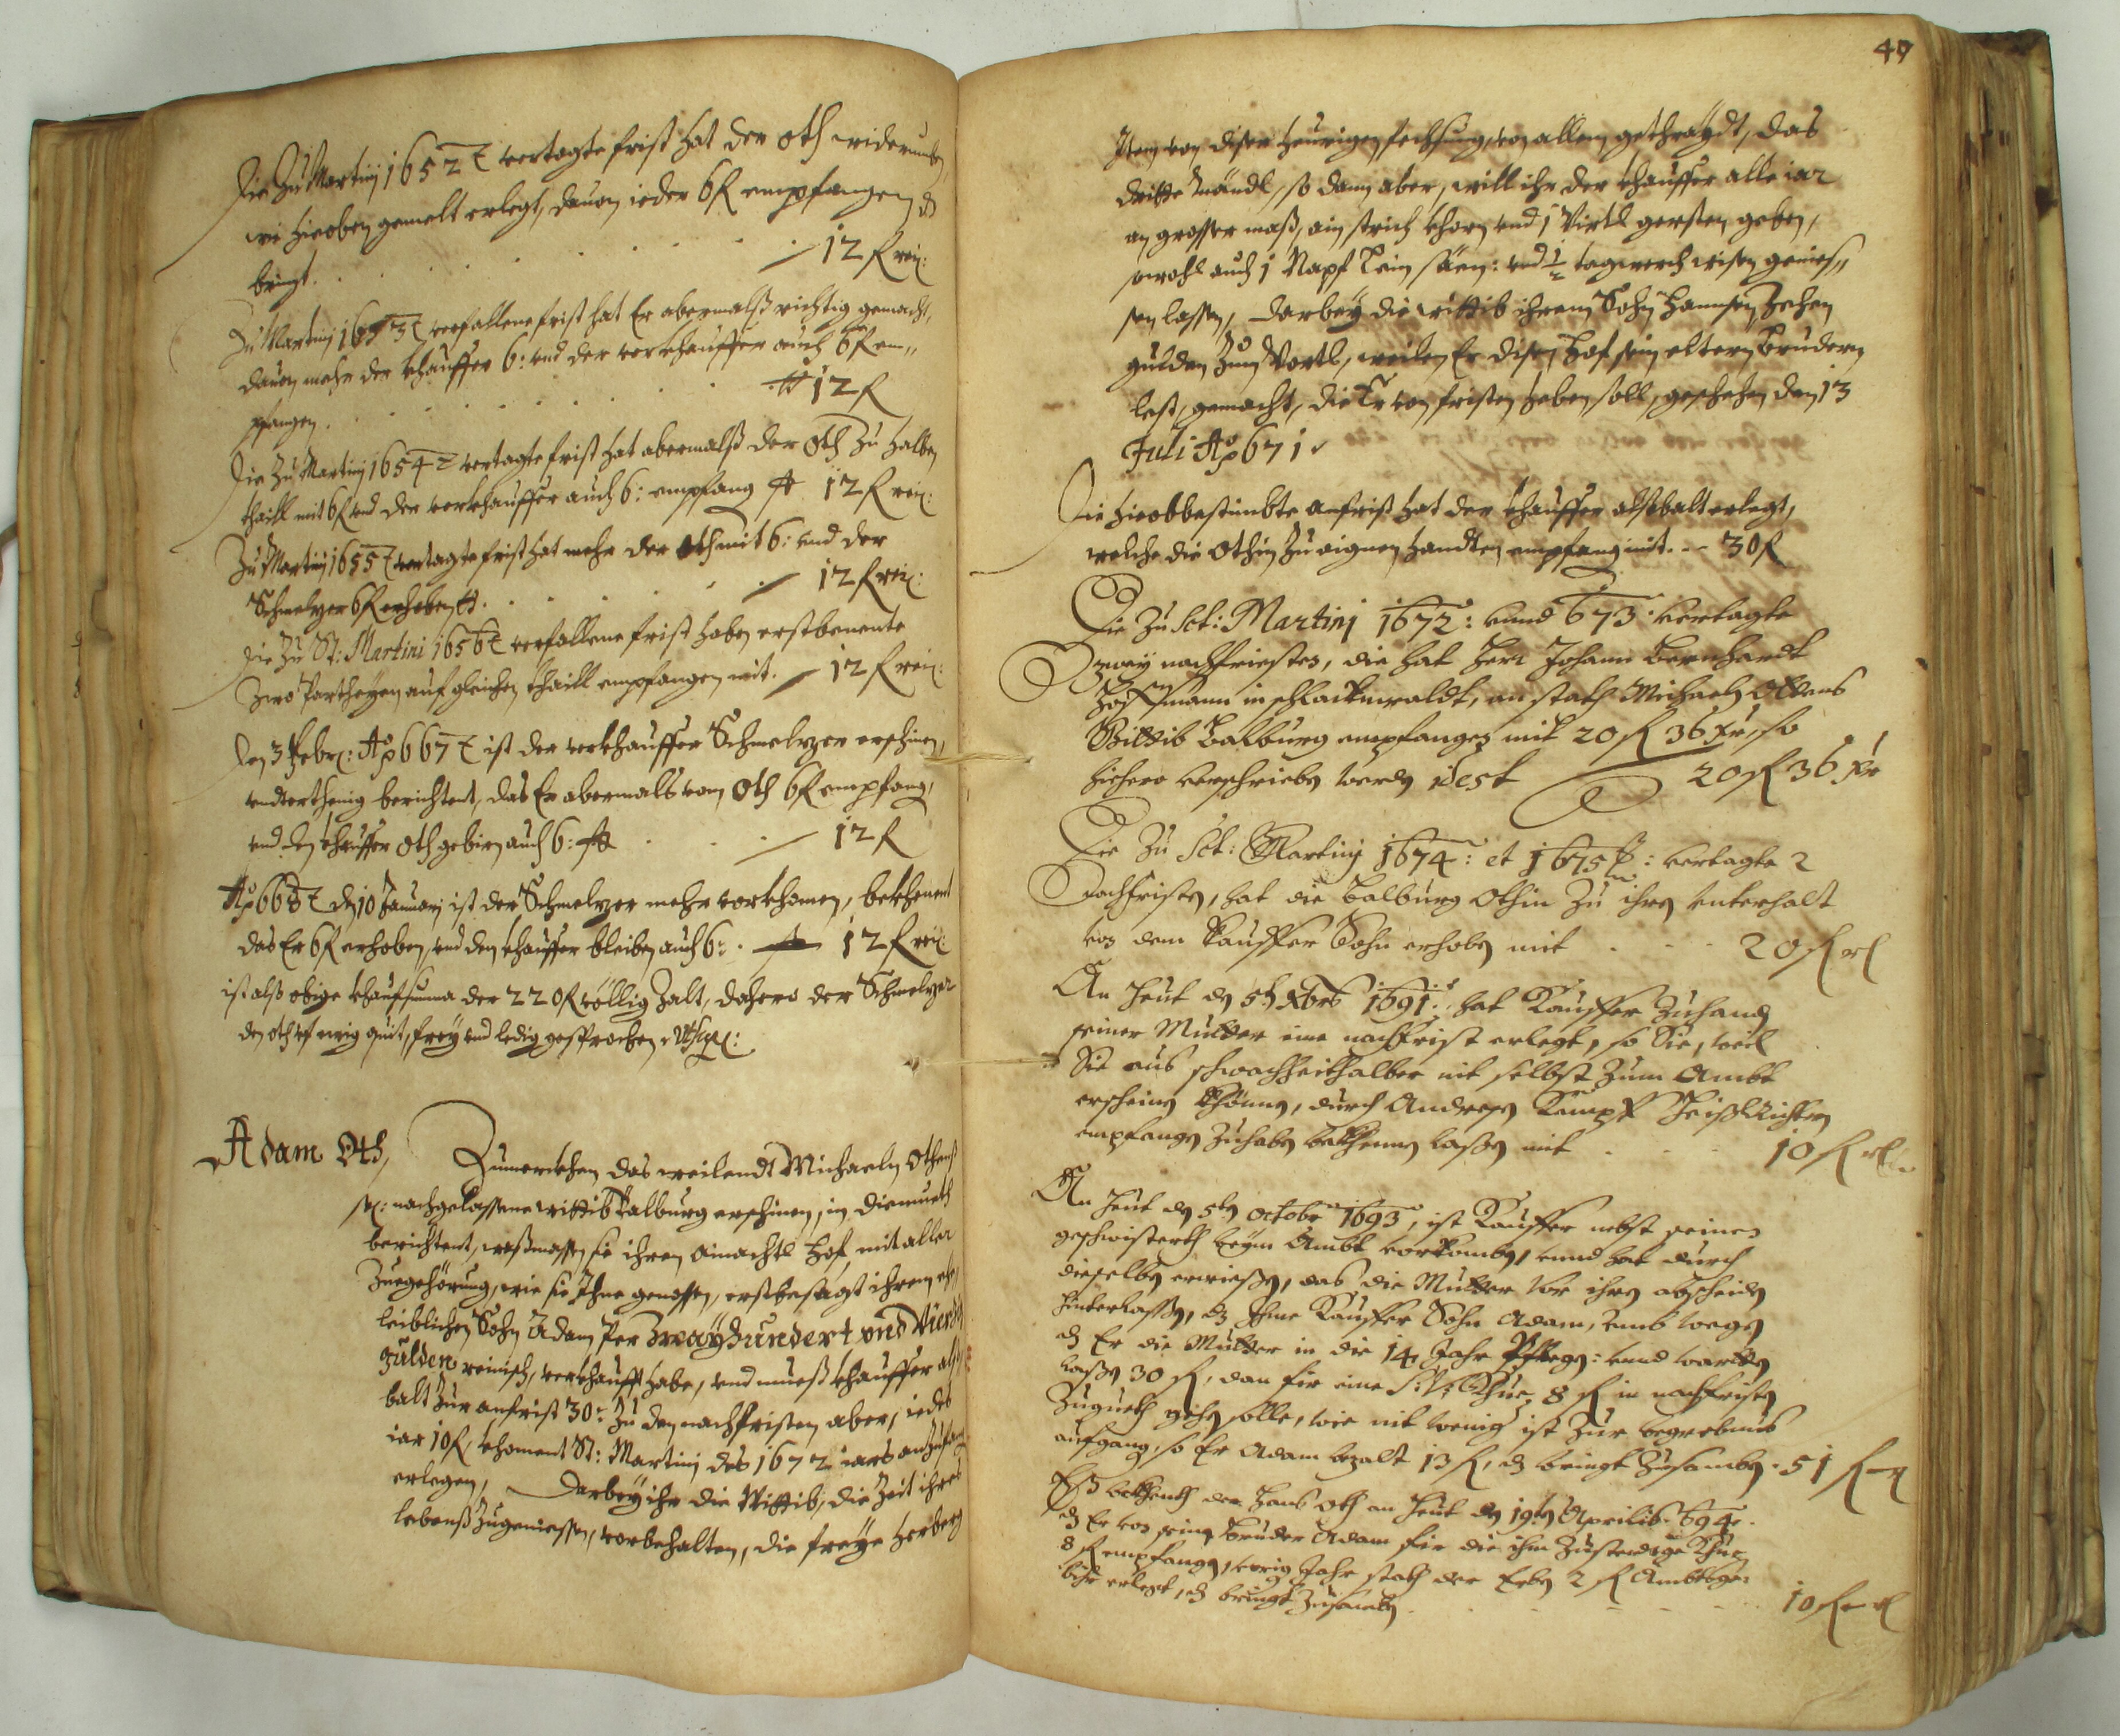 Die Zu Martinj 1652 vertagte frist hat der Oth widerumben
wie hieoben gemelt erlegt, dauon ieder 6 fl empfangen
bringt . . . . . 12 fl rei:
Zu Martinj 1653 verfallene frist hat Er abermalß richtig gemacht,
dauon mehr der khauffer 6: vnd der verkhauffer auch 6 fl em„
pfangen . . . . . 12 fl
Die Zu Martinj 1654 vertagte frist hat abermalß der Oth Zu halben
thaill mit 6 fl vnd der verkhauffer auch 6: empfang 12 fl rei:
Zu Martinj 1655 vertagte frist hat mehr der Oth mit 6: vnd der
Schmelzer 6 fl erhoben . . . 12 fl rei:
Die Zu St: Martini 1656 verfallene frist haben erstbenente
Zwo Partheyen auf gleichen thaill empfangen mit . 12 fl rei:
Den 3 Febr: Ao 667 ist der verkhauffer Schmelzer erschinen,
vndterthenig berichtent, das Er abermalß vom Oth 6 fl empfang,
vnd dem khauffer Oth gebirn auch 6: . . 12 fl
Ao 668 den 10 Januarj ist der Schmelzer mehr vorkhomen, bekhenent
das Er 6 fl erhoben, vnd dem khauffer bleiben auch 6: . 12 fl rei:
ist alß obige khaufsuma der 220 fl völlig Zalt, dahero der Schmelzer
den Oth vf ewig quit, frey vnd ledig gesprochen
Adam Oth, Zumerkhen das weilendt Michaeln Othenß
sel: nachgelassene wittib Walburg erschinen, in diemueth
berichtent, waßmassen sie ihren ainachtl Hof, mit aller
Zuegehörung, wie sie Ihne genossen, erstbesagt ihrem ehe„
leiblichen Sohn Adam per Zwayhundert vnd Vierzig
gulden reinisch, verkhaufft habe, vnd mueß khauffer alß„
balt zur anfrist 30 : Zu den nachfristen aber, iedes
iar 10 fl, khoment St: Martinj des 1672 iars anzufang
erlegen, Darbey ihr die Wittib, die Zeit ihres
lebenß Zugeniessen, vorbehalten, die freye herberg
49
Item von diser heurigen fechsung, von allem gethraydt, das
dritte Mändl, so dann aber, will ihr der khauffer alle iar
an grosser maß, ain strich khorn vnd 1 Virtl gersten geben,
sowohl auch 1 Napf Lein säen: vnd ½ tagwerch wisen genies„
sen lassen, darbey die wittib ihrem Sohn Hannsen Zehen
gulden Zum Vortl, weilen Er disen Hof sein eltern Bruedern
lest, gemacht, die Er von fristen heben soll, geschehen den 13
Juli Ao 671
Die hieobbestimbte anfrist hat der khauffer alßbalt erlegt,
welche die Othin Zu aignen handten empfang mit . . . 30 fl
Die Zu Sct: Martinj 1672: vnnd 673 vertagte
Zway nachfristen, die hat Herr Johann Bernhardt
Hoffmann in Schlackenwaldt, an statt Michaeln Ottens
Wittib Walburg empfangen mit 20 fl 36 xr, so
hiehero verschrieben werden idest 20 fl 36 xr
Die Zu Sct: Martinj 1674: et 1675: vertagte 2
Nachfristen, hat die Walburg Othin Zu ihren Vnterhalt
von dem Kauffer Sohn erhoben mit . . . 20 fl rl
An Heut den 5ten Xbris 1691: hat Kauffer Zuhanden
seiner Mutter eine nachfrist erlegt, so Sie, weil
Sie aus schwachheit halber nit selbst Zum Ambt
erscheinen khönnen, durch Andreß Kempf Richtern
empfangen Zuhaben bekhennen laßen mit . . . 10 fl rl
An Heut den 5ten Octobr 1693, ist Kauffer nebst seinen
geschwisterth beym Ambt vorkomben, vnnd hat durch
dieselben erwießen, das die Mutter vor ihren abscheiden
hinterlassen, das Ihme Kauffer Sohn Adam, vmb wegen
das Er die Mutter in die 14 Jahr Pflegen: vnnd wartten
laßen 30 fl, dan für eine S: V: Khue 8 fl in nachfristen
Zugueth gehen solle, wie nit wenig ist Zur begrebnus
aufgang, so Er Adam bezalt 13 fl, das bringt Zusamben . 51 fl
Eß bekhenth der Hans Oth an Heut den 19ten Aprilis 694.
das Er von seinen Bruder Adam für die ihm Zustendige Khue
8 fl empfangen, vorig Jahr statt der Erben 2 fl Ambtsge„
bihr erlegt, das bringt Zusamben . . . 10 fl